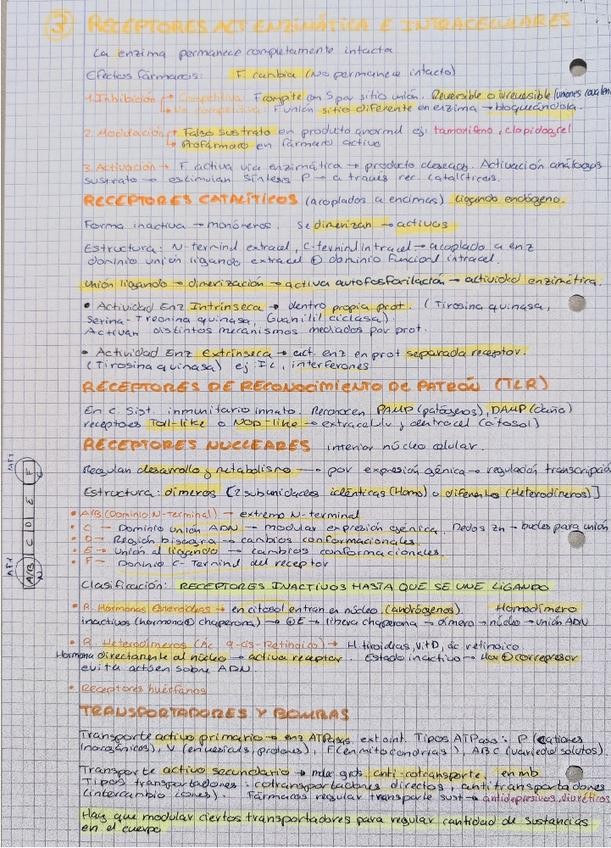 ③ RECEPTORES ACT ENZIMÁTICA E INTRACELULARES
La enzima permanece completamente intacta
Efectos fármacos: F cambia (No permanece intacto)
1. Inhibición → Competitiva F compite con S por sitio unión. Reversible o irreversible (uniones covalen
No competitiva F unión sitio diferente en enzima → bloqueándola.
2. Modulación → Falso sustrato en producto anormal ej: tamoxifeno, clopidogrel
→ Profármaco en fármaco activo
3. Activación → F activa vía enzimática → producto deseado. Activación análogos
sustrato → estimulan síntesis P → a través rec catalíticos.
RECEPTORES CATALÍTICOS (acoplados a encimas) ligando endógeno.
Forma inactiva → monómeros. Se dimerizan → activos
Estructura: N-terminal extracel, C-terminal intracel → acoplado a enz
dominio unión ligando extracel ⊕ dominio funcional intracel.
Unión ligando → dimerización → activa autofosforilación → actividad enzimática.
• Actividad Enz Intrínseca → dentro propia prot. (Tirosina quinasa,
Serina-Treonina quinasa, Guanilil ciclasa).
Activan distintos mecanismos mediados por prot.
• Actividad Enz Extrínseca → act. enz en prot separada receptor.
(Tirosina quinasa) ej IL, interferones
RECEPTORES DE RECONOCIMIENTO DE PATRÓN (TLR)
En c. sist. inmunitario innato. Reconocen PAMP (patógenos), DAMP (daño)
receptores Toll-like o NOD-like → extracelular y dentro cel (citosol)
RECEPTORES NUCLEARES interior núcleo celular.
Regulan desarrollo y metabolismo → por expresión génica → regulación transcripció
Estructura: dímeros [2 subunidades idénticas (Homo) o diferentes (Heterodímeros)]
• A/B (Dominio N-Terminal) → extremo N-terminal
• C → Dominio unión ADN → modular expresión génica. Dedos Zn → bucles para unión
• D → Región bisagra → cambios conformacionales.
• E → Unión al ligando → cambios conformacionales.
• F → Dominio C-Terminal del receptor
AF1 A/B C D E F AF2
N
Clasificación: RECEPTORES INACTIVOS HASTA QUE SE UNE LIGANDO
• R. Hormonas Esteroideas → en citosol entran en núcleo (andrógenos). Homodímero
inactivos (hormona ⊕ chaperona) → ⊕E → libera chaperona → dímero → núcleo → unión ADN
• R. Heterodímeros (Ác 9-cis Retinoico) → H. tiroideas, vit D, ác retinoico
Hormona directamente al núcleo → activa receptor. Estado inactivo → ⊕ correpresor
evita actúen sobre ADN.
• Receptores huérfanos
TRANSPORTADORES Y BOMBAS
Transporte activo primario → enz ATPasas, ext a int. Tipos ATPasa: P (cationes
inorgánicos), V (en vesículas, protones), F (en mitocondrias), ABC (variedad solutos).
Transporte activo secundario → anti-cotransporte, en mb
Tipos transportadores: cotransportadores directos, antitransportadores
(intercambio iones). Fármacos regular transporte sust → antidepresivos, diuréticos
Hay que modular ciertos transportadores para regular cantidad de sustancias
en el cuerpo